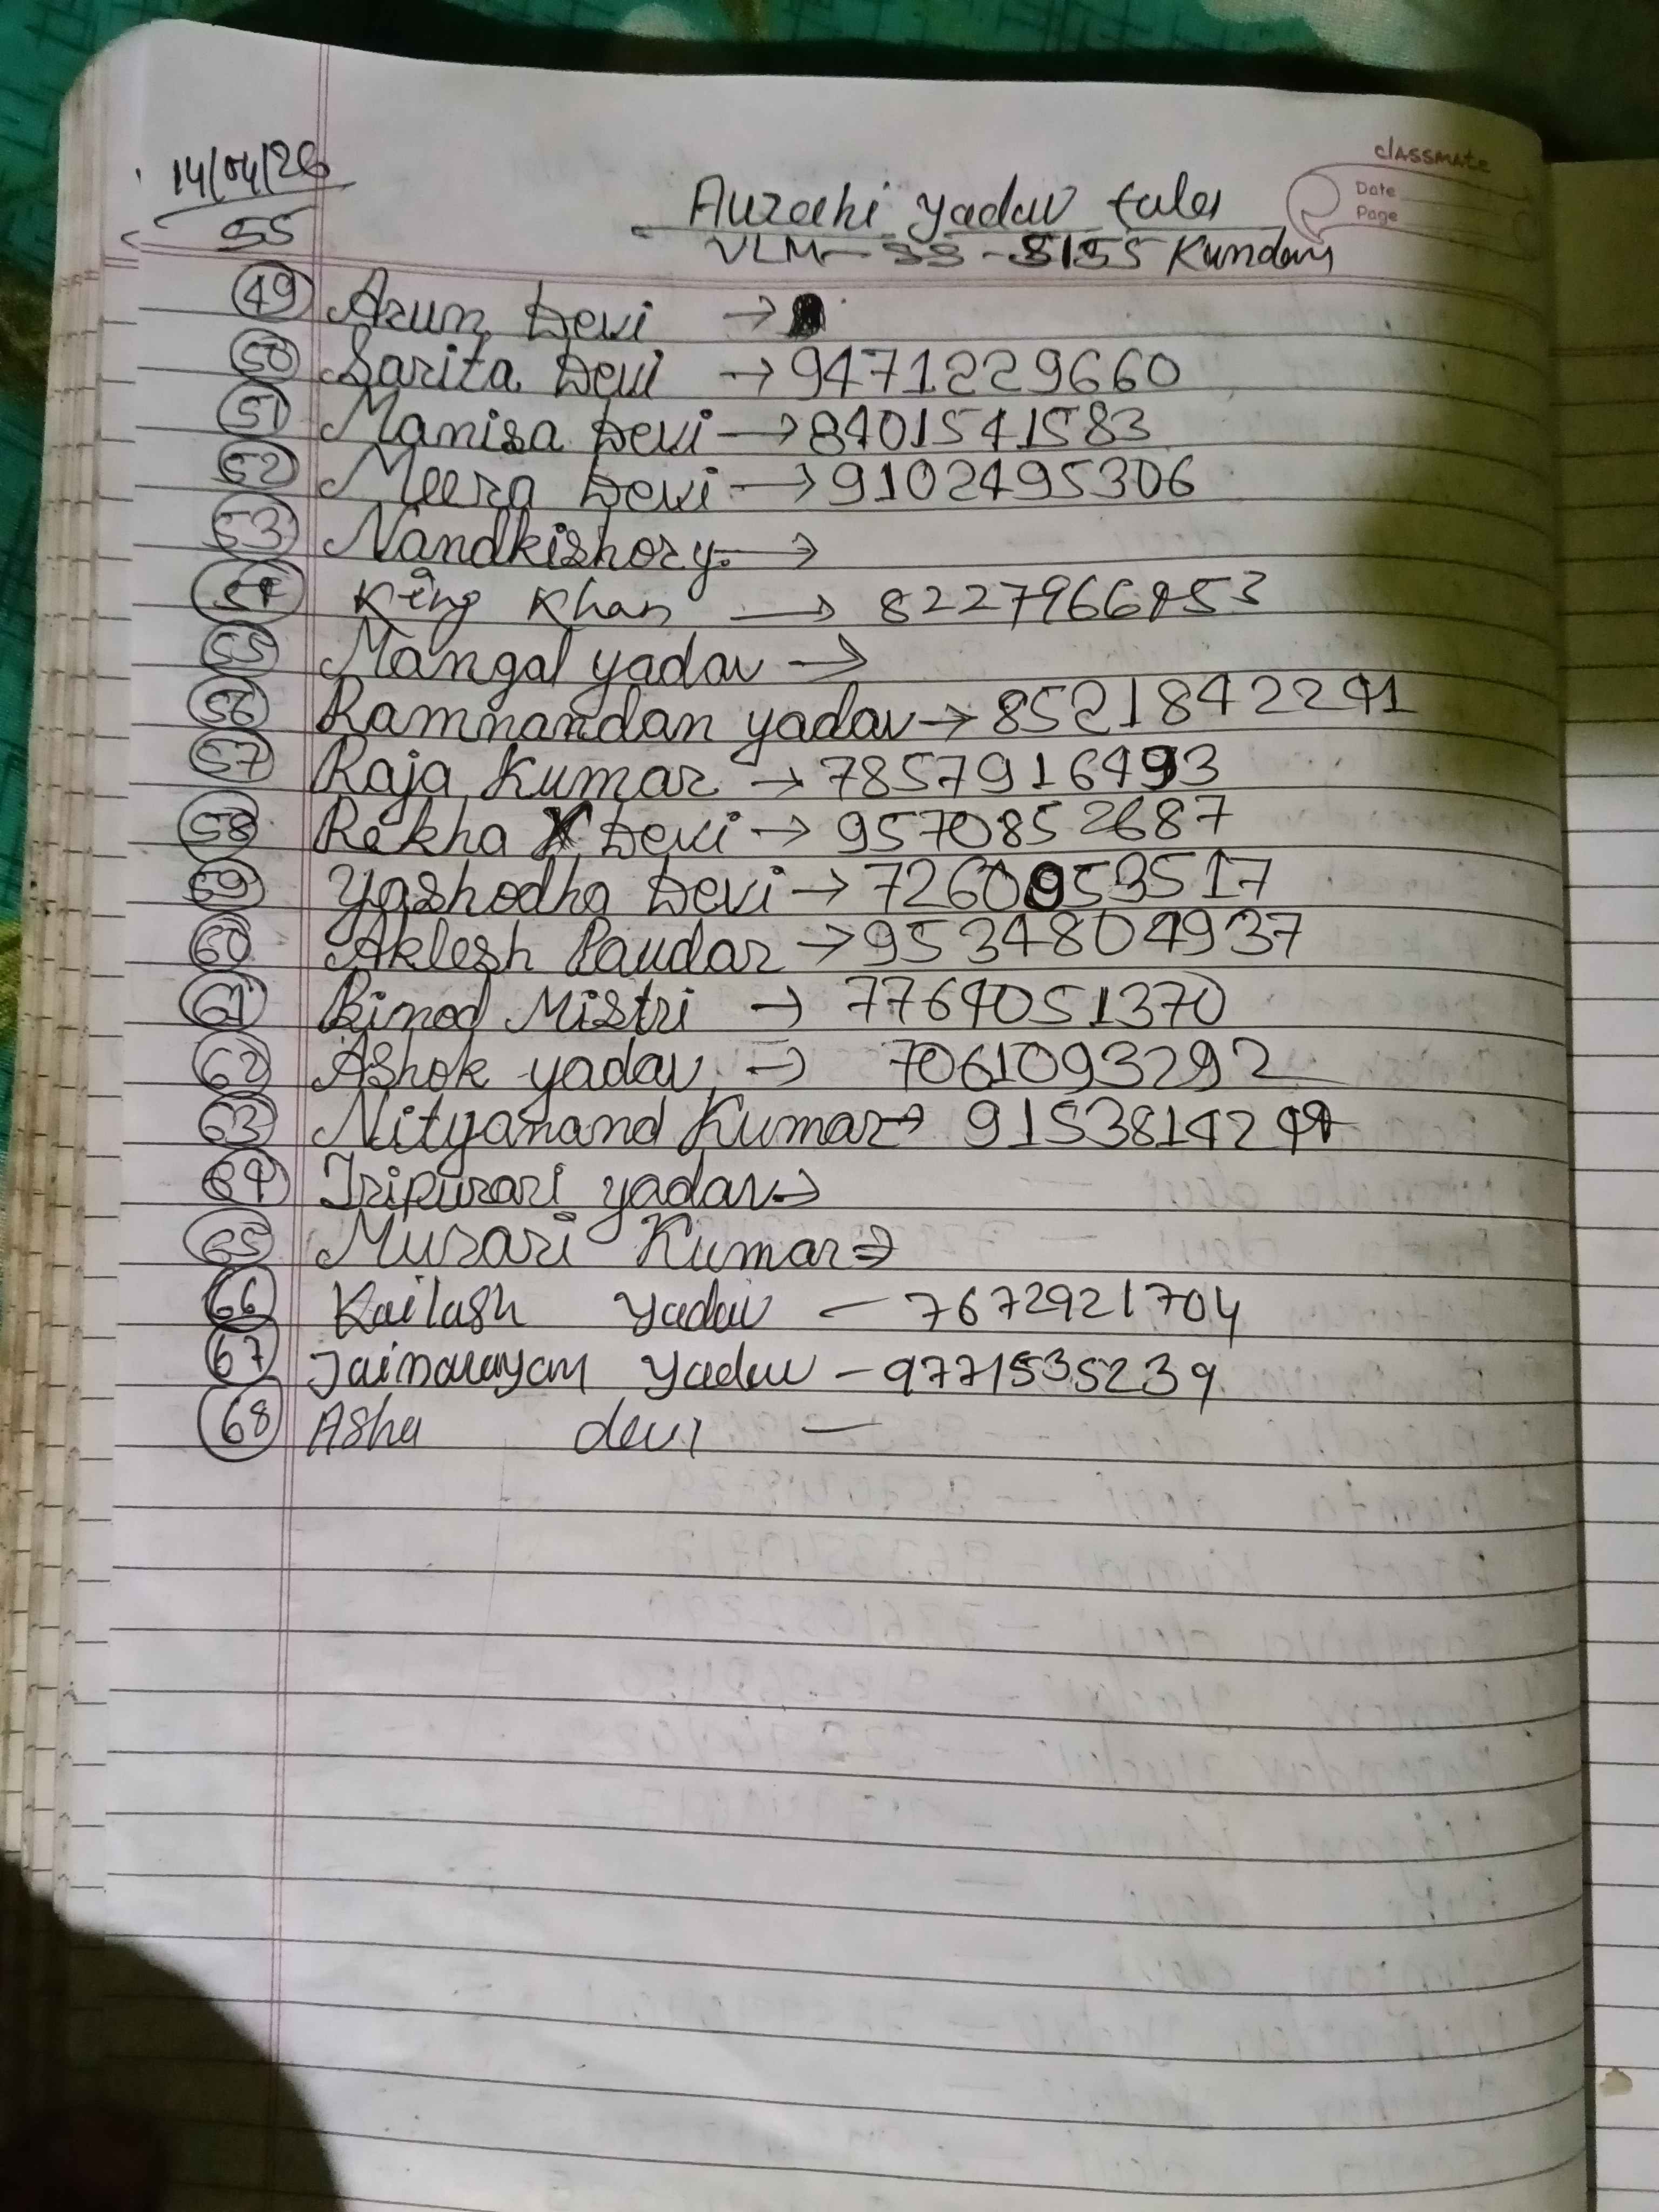 classmate
Date
Page
14/04/26
55
Aurahi yadav tola
VLM-33-5155 Kundan
49 Arun Devi →
50 Sarita Devi → 9471229660
51 Manisa Devi → 8401541583
52 Meera Devi → 9102495306
53 Nandkishor y. →
54 King Khan → 8227966853
55 Mangal yadav →
56 Ramnandan yadav → 8521842291
57 Raja Kumar → 7857916493
58 Rekha Devi → 9570852687
59 Yashodha Devi → 7260953517
60 Aklesh Paudar → 9534804937
61 Binod Mistri → 7764051370
62 Ashok yadav → 7061093292
63 Nityanand Kumar →
64 Tripurari yadav →
65 Murari Kumar →
66 Kailash yadav – 7672921704
67 Jainarayan yadav – 9771535239
68 Asha devi –